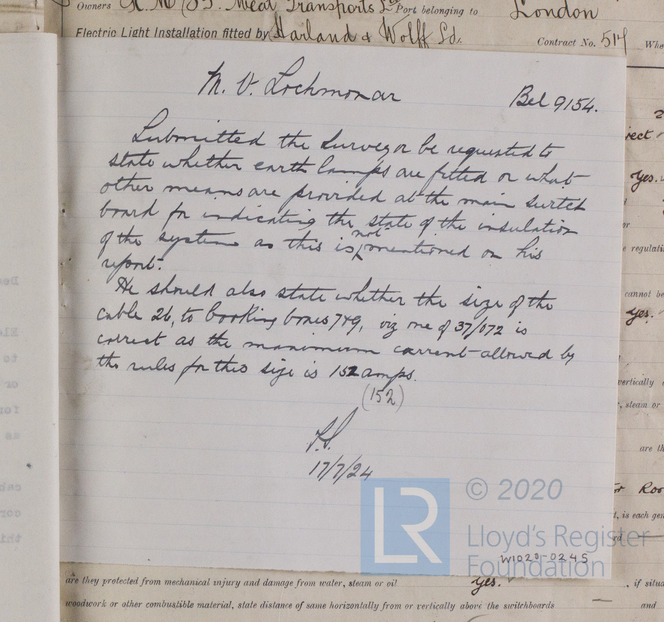 Owners R.M.S.P. Meat Transports Ld Port belonging to London
Electric Light Installation fitted by Harland & Wolff Ld. Contract No. 514 Whe
M. V. Lochmonar Bel 9154.
Submitted the Surveyor be requested to
state whether earth lamps are fitted or what
other means are provided at the main switch
board for indicating the state of the insulation
of the system as this is not mentioned on his
report.
He should also state whether the size of the
cable 26, to booking boxes 7&9, viz one of 37/072 is
correct as the maximum current allowed by
the rules for this size is 152 amps.
(152)
17/7/24
rect
Yes.
e regulati
cannot be
Yes.
vertically
, steam or
are th
Roo
t, is each gen
LR © 2020
Lloyd's Register
Foundation
W1028-0245
are they protected from mechanical injury and damage from water, steam or oil Yes. , if situa
woodwork or other combustible material, state distance of same horizontally from or vertically above the switchboards — and